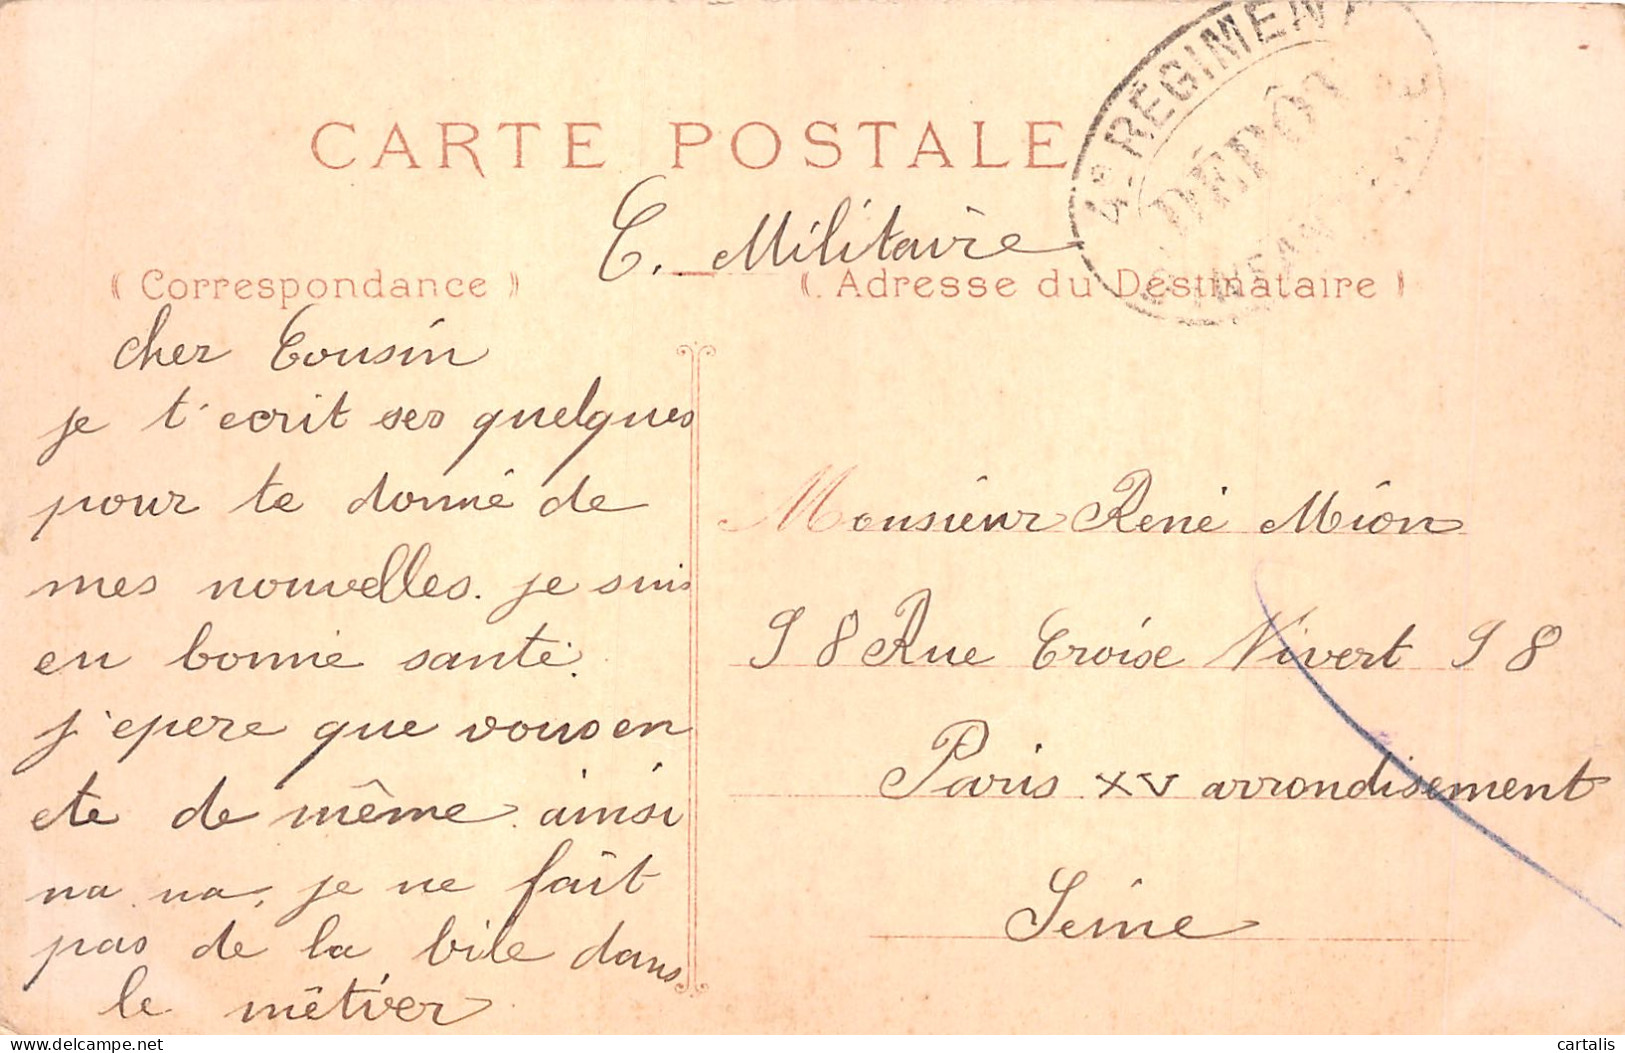 CARTE POSTALE
4e RÉGIMENT
DÉPÔT
INFANTERIE
C. Militaire
Correspondance
Adresse du Destinataire
cher Cousin
je t'ecrit ses quelques
pour te donné de
mes nouvelles. je suis
en bonne santé.
j'epere que vous en
ete de même. ainsi
na na, je ne fait
pas de la bile dans
le métier
Monsieur René Mion
98 Rue Croix Nivert 98
Paris XV arrondisement
Seine
delcampe.net
cartalis